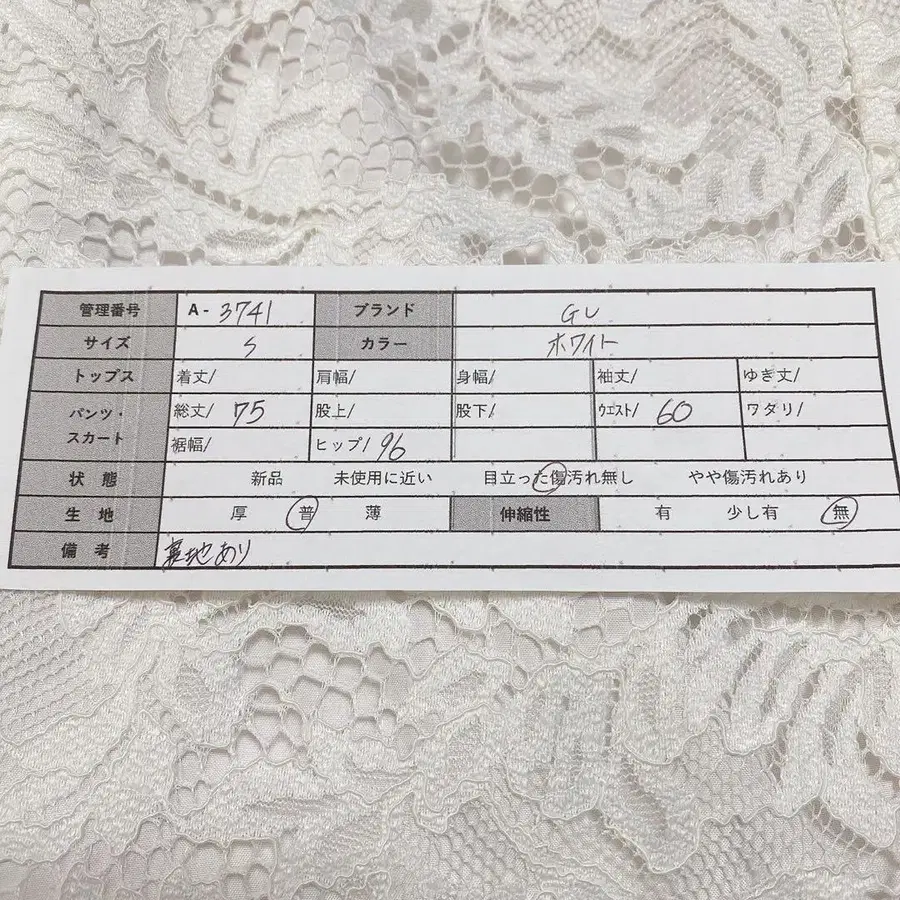 管理番号 A- 3741 ブランド GU
サイズ S カラー ホワイト
トップス 着丈/ 肩幅/ 身幅/ 袖丈/ ゆき丈/
パンツ・スカート 総丈/ 75 股上/ 股下/ ウエスト/ 60 ワタリ/
裾幅/ ヒップ/ 96
状態 新品 未使用に近い 目立った傷汚れ無し やや傷汚れあり
生地 厚 普 薄 伸縮性 有 少し有 無
備考 裏地あり